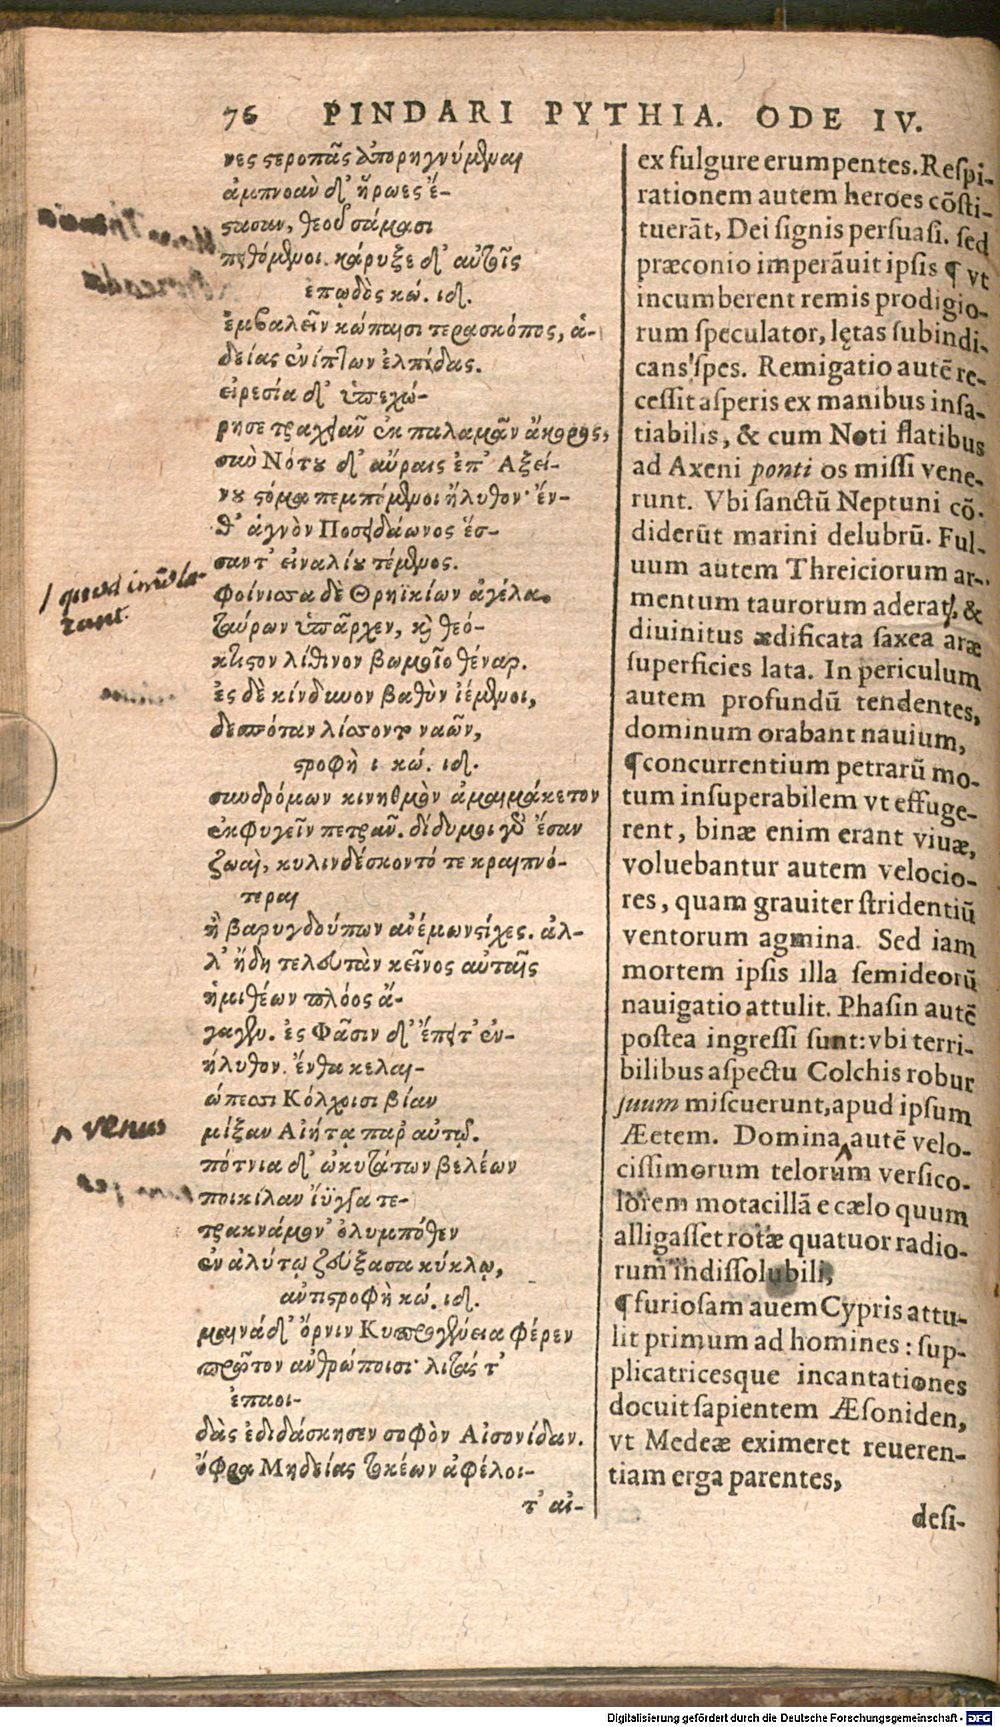 76 PINDARI PYTHIA. ODE IV.
νες στεροπᾶς ἀπορηγνύμεναι
ἀμπνοὰν δ' ἥρωες ἔ-
στασαν, θεοῦ σάμασι
πειθόμενοι. κάρυξε δ' αὐτοῖς
ἐπῳδὸς κώ. ιδ.
ἐμβαλεῖν κώπαισι τερασκόπος, ἁ-
δείας ἐνίπτων ἐλπίδας.
εἰρεσία δ' ὑπεχώ-
ρησε ταχειᾶν ἐκ παλαμᾶν ἄκορος,
σὺν Νότου δ' αὔραις ἐπ' Ἀξεί-
νου στόμα πεμπόμενοι ἤλυθον· ἔν-
θ' ἁγνὸν Ποσειδάωνος ἕσ-
σαντ' εἰναλίου τέμενος.
φοίνισσα δὲ Θρηϊκίων ἀγέλα
ταύρων ὑπᾶρχεν, καὶ θεό-
κτιστον λίθινον βωμοῖο θέναρ.
ἐς δὲ κίνδυνον βαθὺν ἱέμενοι,
δεσπόταν λίσσοντο ναῶν,
στροφὴ ι κώ. ιδ.
συνδρόμων κινηθμὸν ἀμαιμάκετον
ἐκφυγεῖν πετρᾶν. δίδυμοι γὰρ ἔσαν
ζωαὶ, κυλινδέσκοντό τε κραιπνό-
τεραι
ἢ βαρυγδούπων ἀνέμων στίχες. ἀλ-
λ' ἤδη τελευτὰν κεῖνος αὐταῖς
ἡμιθέων πλόος ἄ-
γαγεν. ἐς Φᾶσιν δ' ἔπειτ' ἐν-
ήλυθον. ἔνθα κελαι-
ώπεσσι Κόλχοισι βίαν
μίξαν Αἰήτᾳ παρ' αὐτῷ.
πότνια δ' ὠκυτάτων βελέων
ποικίλαν ἴϋγγα τε-
τρακνάμον' ὀλυμπόθεν
ἐν ἀλύτῳ ζεύξασα κύκλῳ,
ἀντιστροφὴ κώ. ιδ.
μαινάδ' ὄρνιν Κυπρογένεια φέρεν
πρῶτον ἀνθρώποισι· λιτάς τ'
ἐπαοι-
δὰς ἐδιδάσκησεν σοφὸν Αἰσονίδαν.
ὄφρα Μηδείας τοκέων ἀφέλοι-
τ' αἰ-
ex fulgure erumpentes. Respi-
rationem autem heroes cõsti-
tuerãt, Dei signis persuasi. sed
præconio imperãuit ipsis ¶ vt
incumberent remis prodigio-
rum speculator, lętas subindi-
cans spes. Remigatio autẽ re-
cessit asperis ex manibus insa-
tiabilis, & cum Noti flatibus
ad Axeni ponti os missi vene-
runt. Vbi sanctũ Neptuni cõ-
diderũt marini delubrũ. Ful-
uum autem Threiciorum ar-
mentum taurorum aderat, &
diuinitus ædificata saxea aræ
superficies lata. In periculum
autem profundũ tendentes,
dominum orabant nauium,
¶concurrentium petrarũ mo-
tum insuperabilem vt effuge-
rent, binæ enim erant viuæ,
voluebantur autem velocio-
res, quam grauiter stridentiũ
ventorum agmina. Sed iam
mortem ipsis illa semideorũ
nauigatio attulit. Phasin autẽ
postea ingressi sunt: vbi terri-
bilibus aspectu Colchis robur
suum miscuerunt, apud ipsum
Æetem. Domina autẽ velo-
cissimorum telorum versico-
lorem motacillã e cælo quum
alligasset rotæ quatuor radio-
rum indissolubili,
¶furiosam auem Cypris attu-
lit primum ad homines: sup-
plicatricesque incantationes
docuit sapientem Æsoniden,
vt Medeæ eximeret reueren-
tiam erga parentes,
desi-
venus
Digitalisierung gefördert durch die Deutsche Forschungsgemeinschaft - DFG